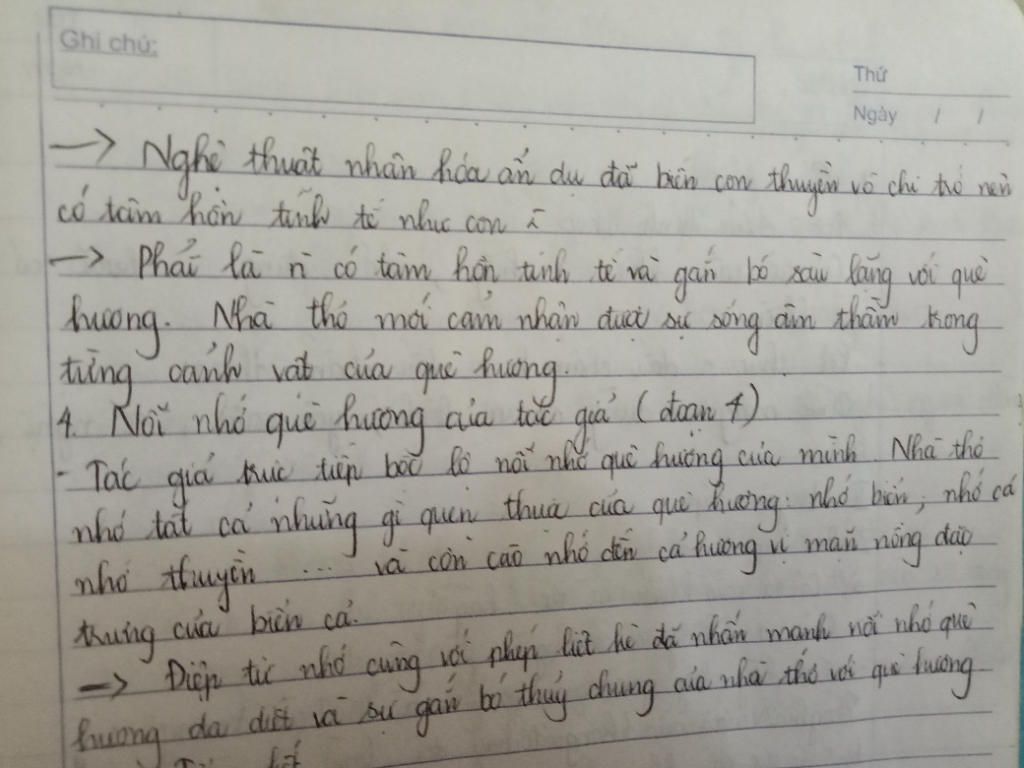 Ghi chú:
Thứ
Ngày / /
→ Nghệ thuật nhân hóa ẩn dụ đã biến con thuyền vô chi trở nên
có tâm hồn tinh tế như con
→ Phải là n có tâm hồn tinh tế và gắn bó sâu lắng với quê
hương. Nhà thơ mới cảm nhận được sự sống âm thầm trong
từng cảnh vật của quê hương.
4. Nỗi nhớ quê hương của tác giả (đoạn 4)
- Tác giả trực tiếp bộc lộ nỗi nhớ quê hương của mình. Nhà thơ
nhớ tất cả những gì quen thuộc của quê hương: nhớ biển, nhớ cá
nhớ thuyền ... và còn cao nhớ đến cả hương vị mặn nồng đặc
trưng của biển cả.
→ Điệp từ nhớ cùng với phép liệt kê đã nhấn mạnh nỗi nhớ quê
hương da diết và sự gắn bó thủy chung của nhà thơ với quê hương